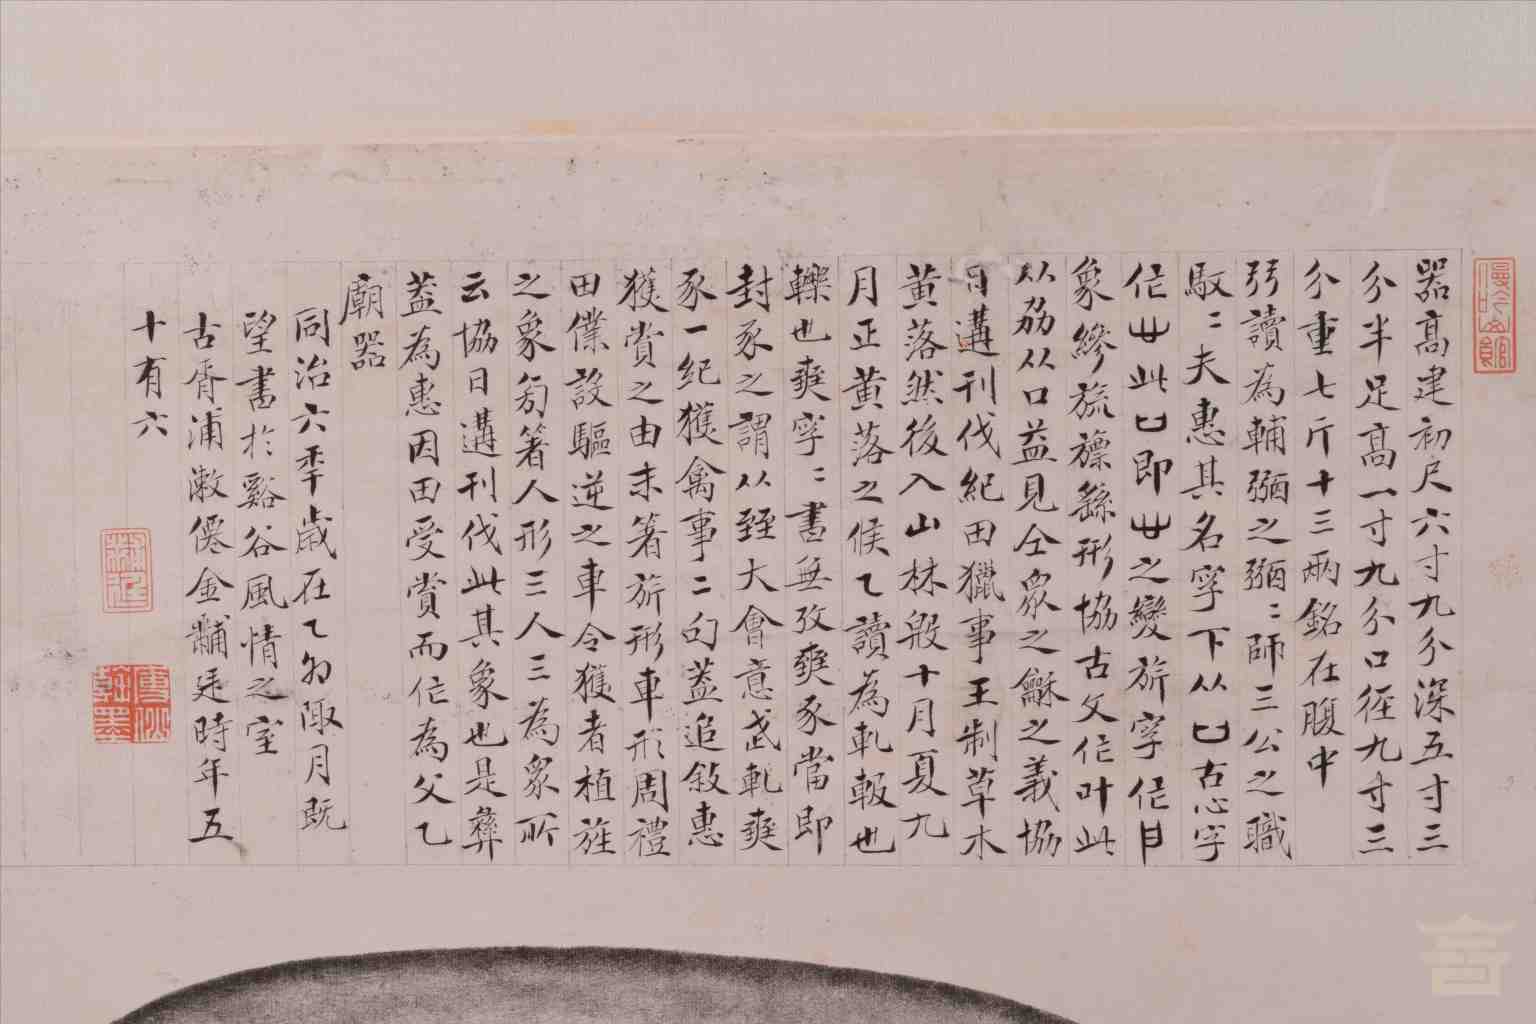 器高建初尺六寸九分深五寸三
分半足高一寸九分口徑九寸三
分重七斤十三兩銘在腹中
弜讀為輔弼之弼〻師三公之職
馭〻夫惠其名寧下从凵古心字
作屮此凵即屮之變旂字作
象縿旒旛緐形協古文作叶此
从劦从口益見仝眾之龢之義協
日遘刊伐紀田獵事王制草木
黃落然後入山林殷十月夏九
月正黃落之候乙讀為軋報也
轢也奭字〻書無攷奭豕當即
封豕之謂从臸大會意武軋奭
豕一紀獲禽事二句蓋追敘惠
獲賞之由末箸旂形車形周禮
田僕設驅逆之車令獲者植旌
之象旁箸人形三人三為眾所
云協日遘刊伐此其象也是彝
蓋為惠因田受賞而作為父乙
廟器
同治六年歲在丁卯陬月既
望書於谿谷風情之室
古胥浦漱僊金黼廷時年五
十有六